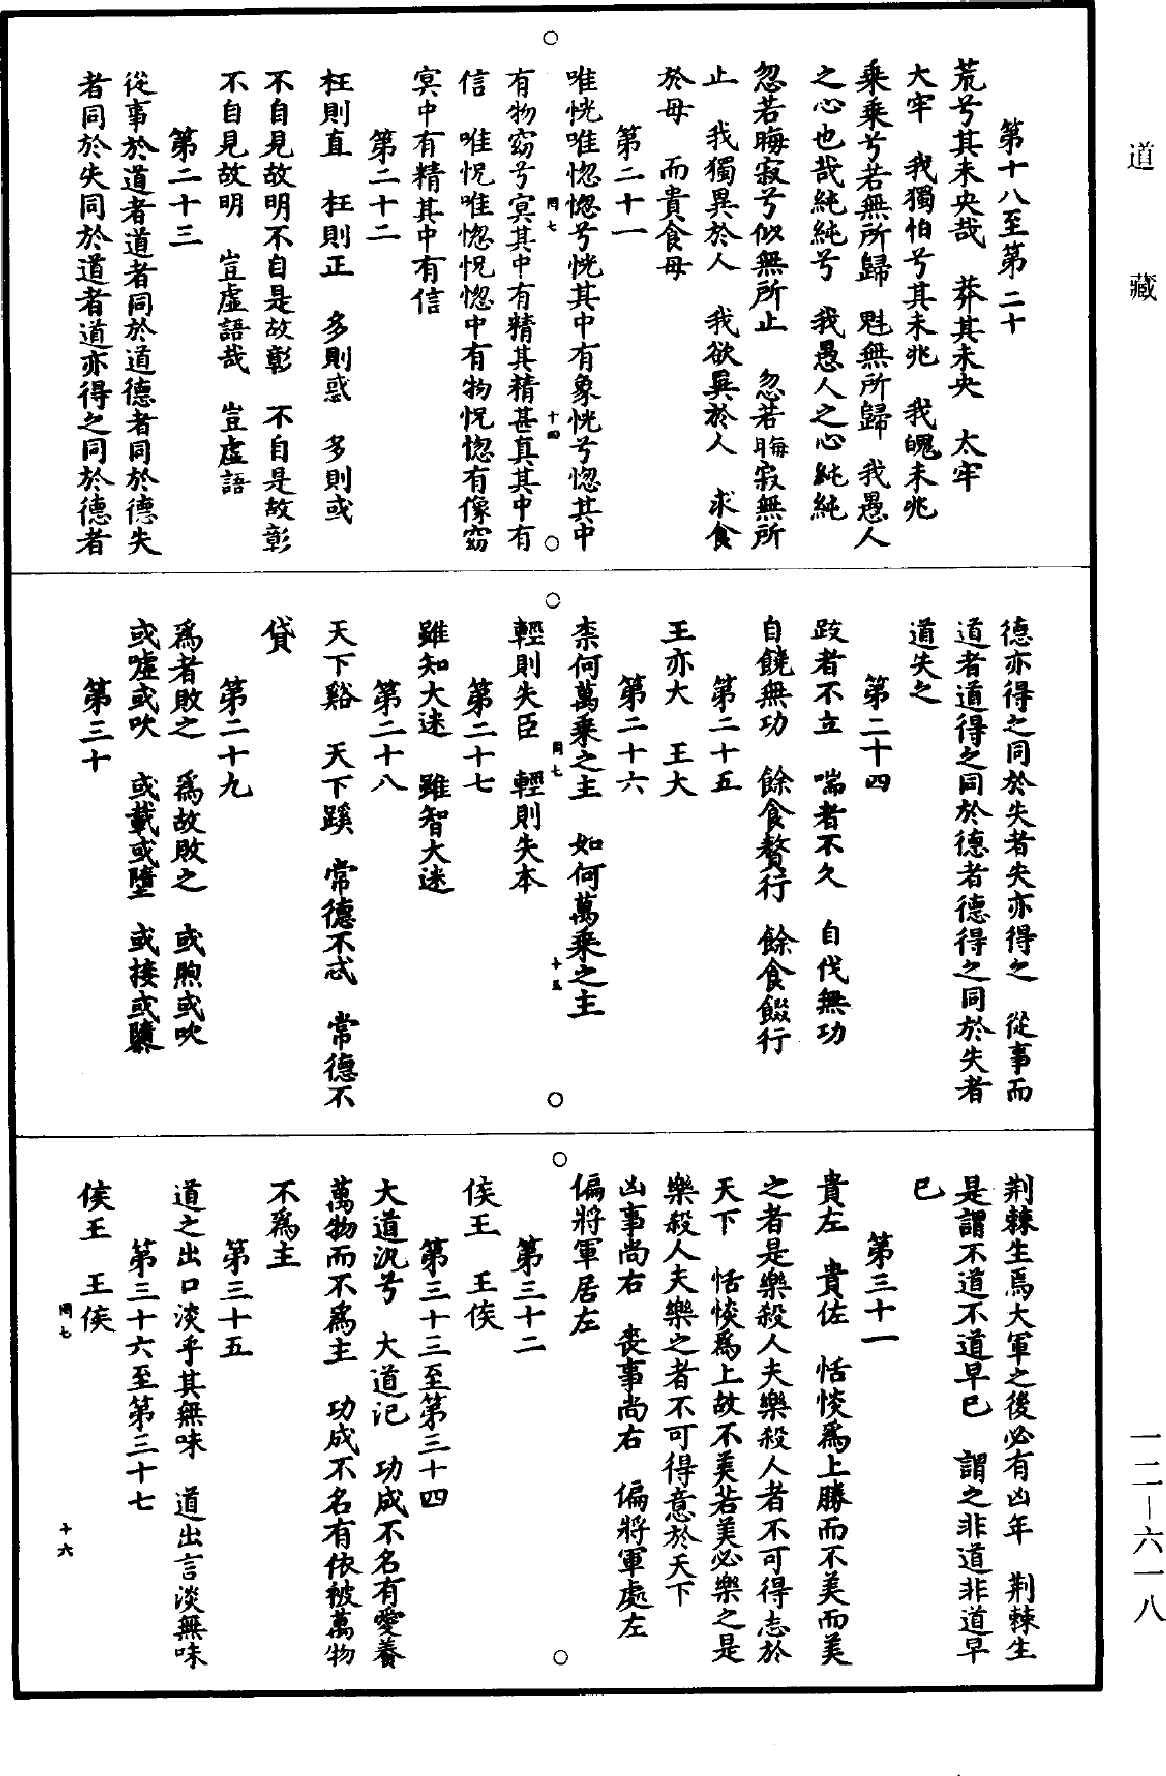 道藏
第十八至第二十
荒兮其未央哉　莽其未央　太牢
大牢　我獨怕兮其未兆　我魄未兆
乘乘兮若無所歸　魁無所歸　我愚人
之心也哉純純兮　我愚人之心純純
忽若晦寂兮似無所止　忽若晦寂無所
止　我獨異於人　我欲異於人　求食
於母　而貴食母
第二十一
唯恍唯惚惚兮恍其中有象恍兮惚其中
同七　十四
有物窈兮冥其中有精其精甚真其中有
信　唯怳唯惚怳惚中有物怳惚有像窈
冥中有精其中有信
第二十二
枉則直　枉則正　多則惑　多則或
不自見故明不自是故彰　不自是故彰
不自見故明　豈虛語哉　豈虛語
第二十三
從事於道者道者同於道德者同於德失
者同於失同於道者道亦得之同於德者
德亦得之同於失者失亦得之　從事而
道者道得之同於德者德得之同於失者
道失之
第二十四
跂者不立　喘者不久　自伐無功
自饒無功　餘食贅行　餘食餟行
第二十五
王亦大　王大
第二十六
柰何萬乘之主　如何萬乘之主
同七　十五
輕則失臣　輕則失本
第二十七
雖知大迷　雖智大迷
第二十八
天下谿　天下蹊　常德不忒　常德不
貸
第二十九
爲者敗之　爲故敗之　或煦或吹
或噓或吹　或載或墮　或接或隳
第三十
荆棘生焉大軍之後必有凶年　荆棘生
是謂不道不道早已　謂之非道非道早
已
第三十一
貴左　貴佐　恬惔爲上勝而不美而美
之者是樂殺人夫樂殺人者不可得志於
天下　恬惔爲上故不美若美必樂之是
樂殺人夫樂之者不可得意於天下
凶事尚右　喪事尚右　偏將軍處左
偏將軍居左
第三十二
侯王　王侯
第三十三至第三十四
大道汎兮　大道汜　功成不名有愛養
萬物而不爲主　功成不名有依被萬物
不爲主
第三十五
道之出口淡乎其無味　道出言淡無味
第三十六至第三十七
侯王　王侯
同七　十六
一二－六一八